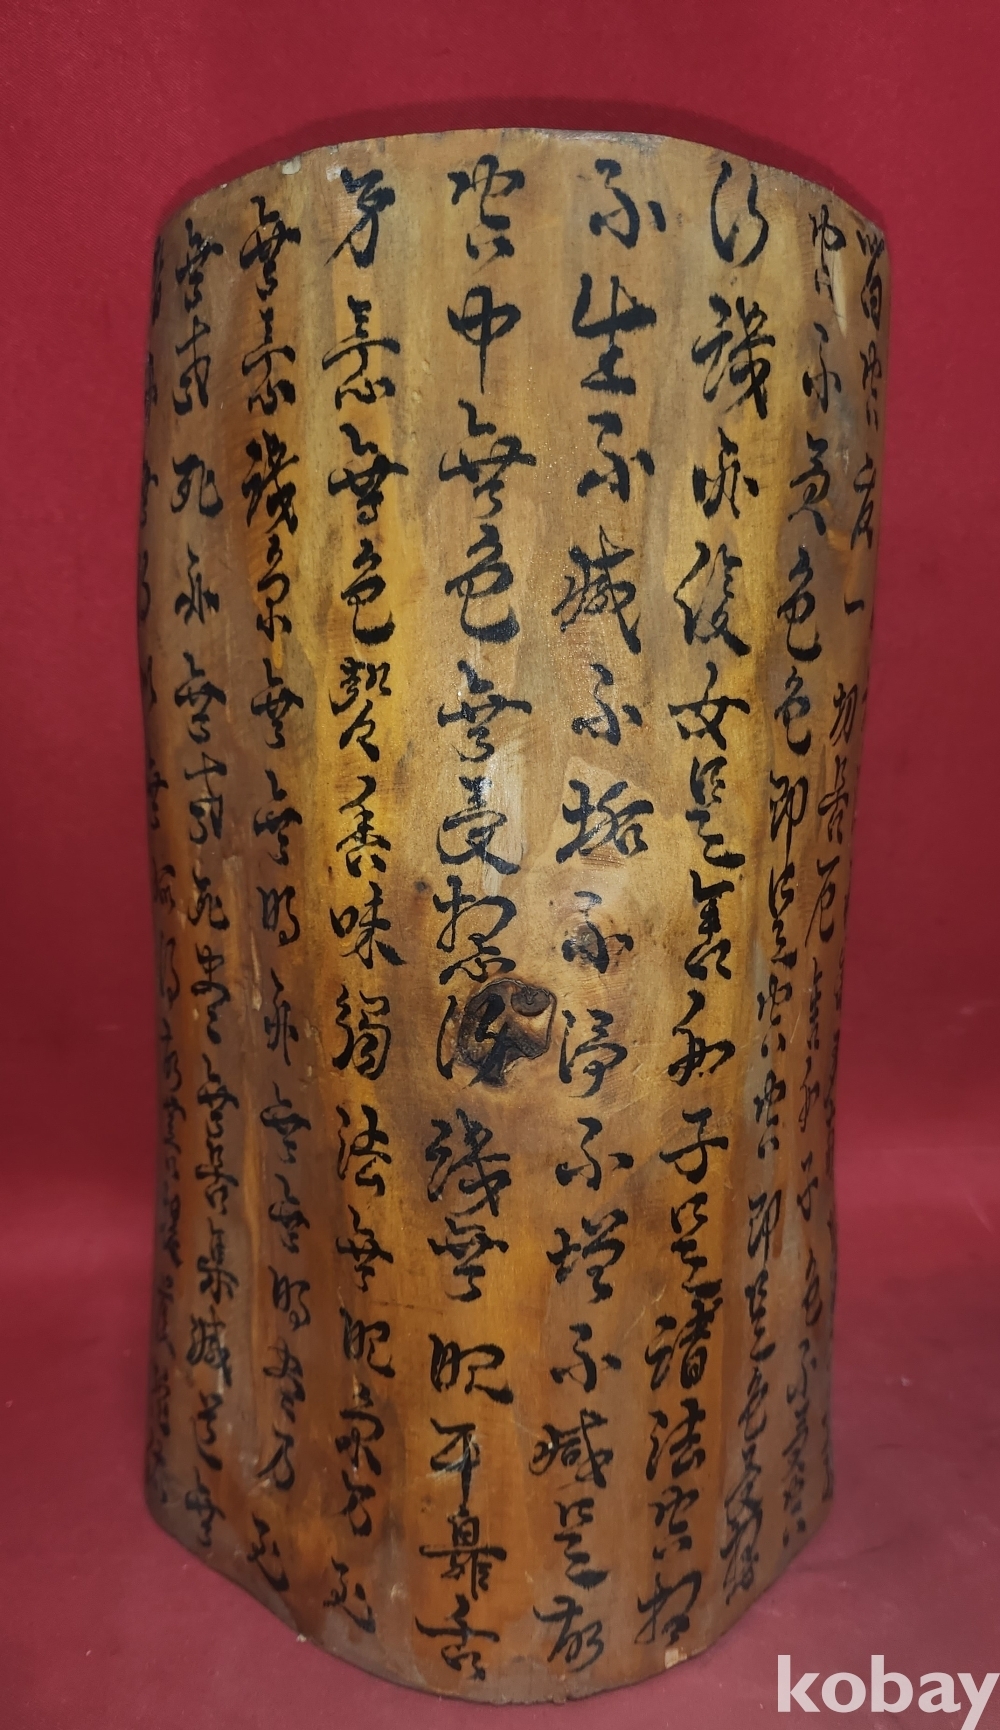 皆空度一切苦厄舍利子色不異空
空不異色色即是空空即是色受想
行識亦復如是舍利子是諸法空相
不生不滅不垢不淨不增不減是故
空中無色無受想行識無眼耳鼻舌
身意無色聲香味觸法無眼界乃至
無意識界無無明亦無無明盡乃至
無老死亦無老死盡無苦集滅道無
kobay